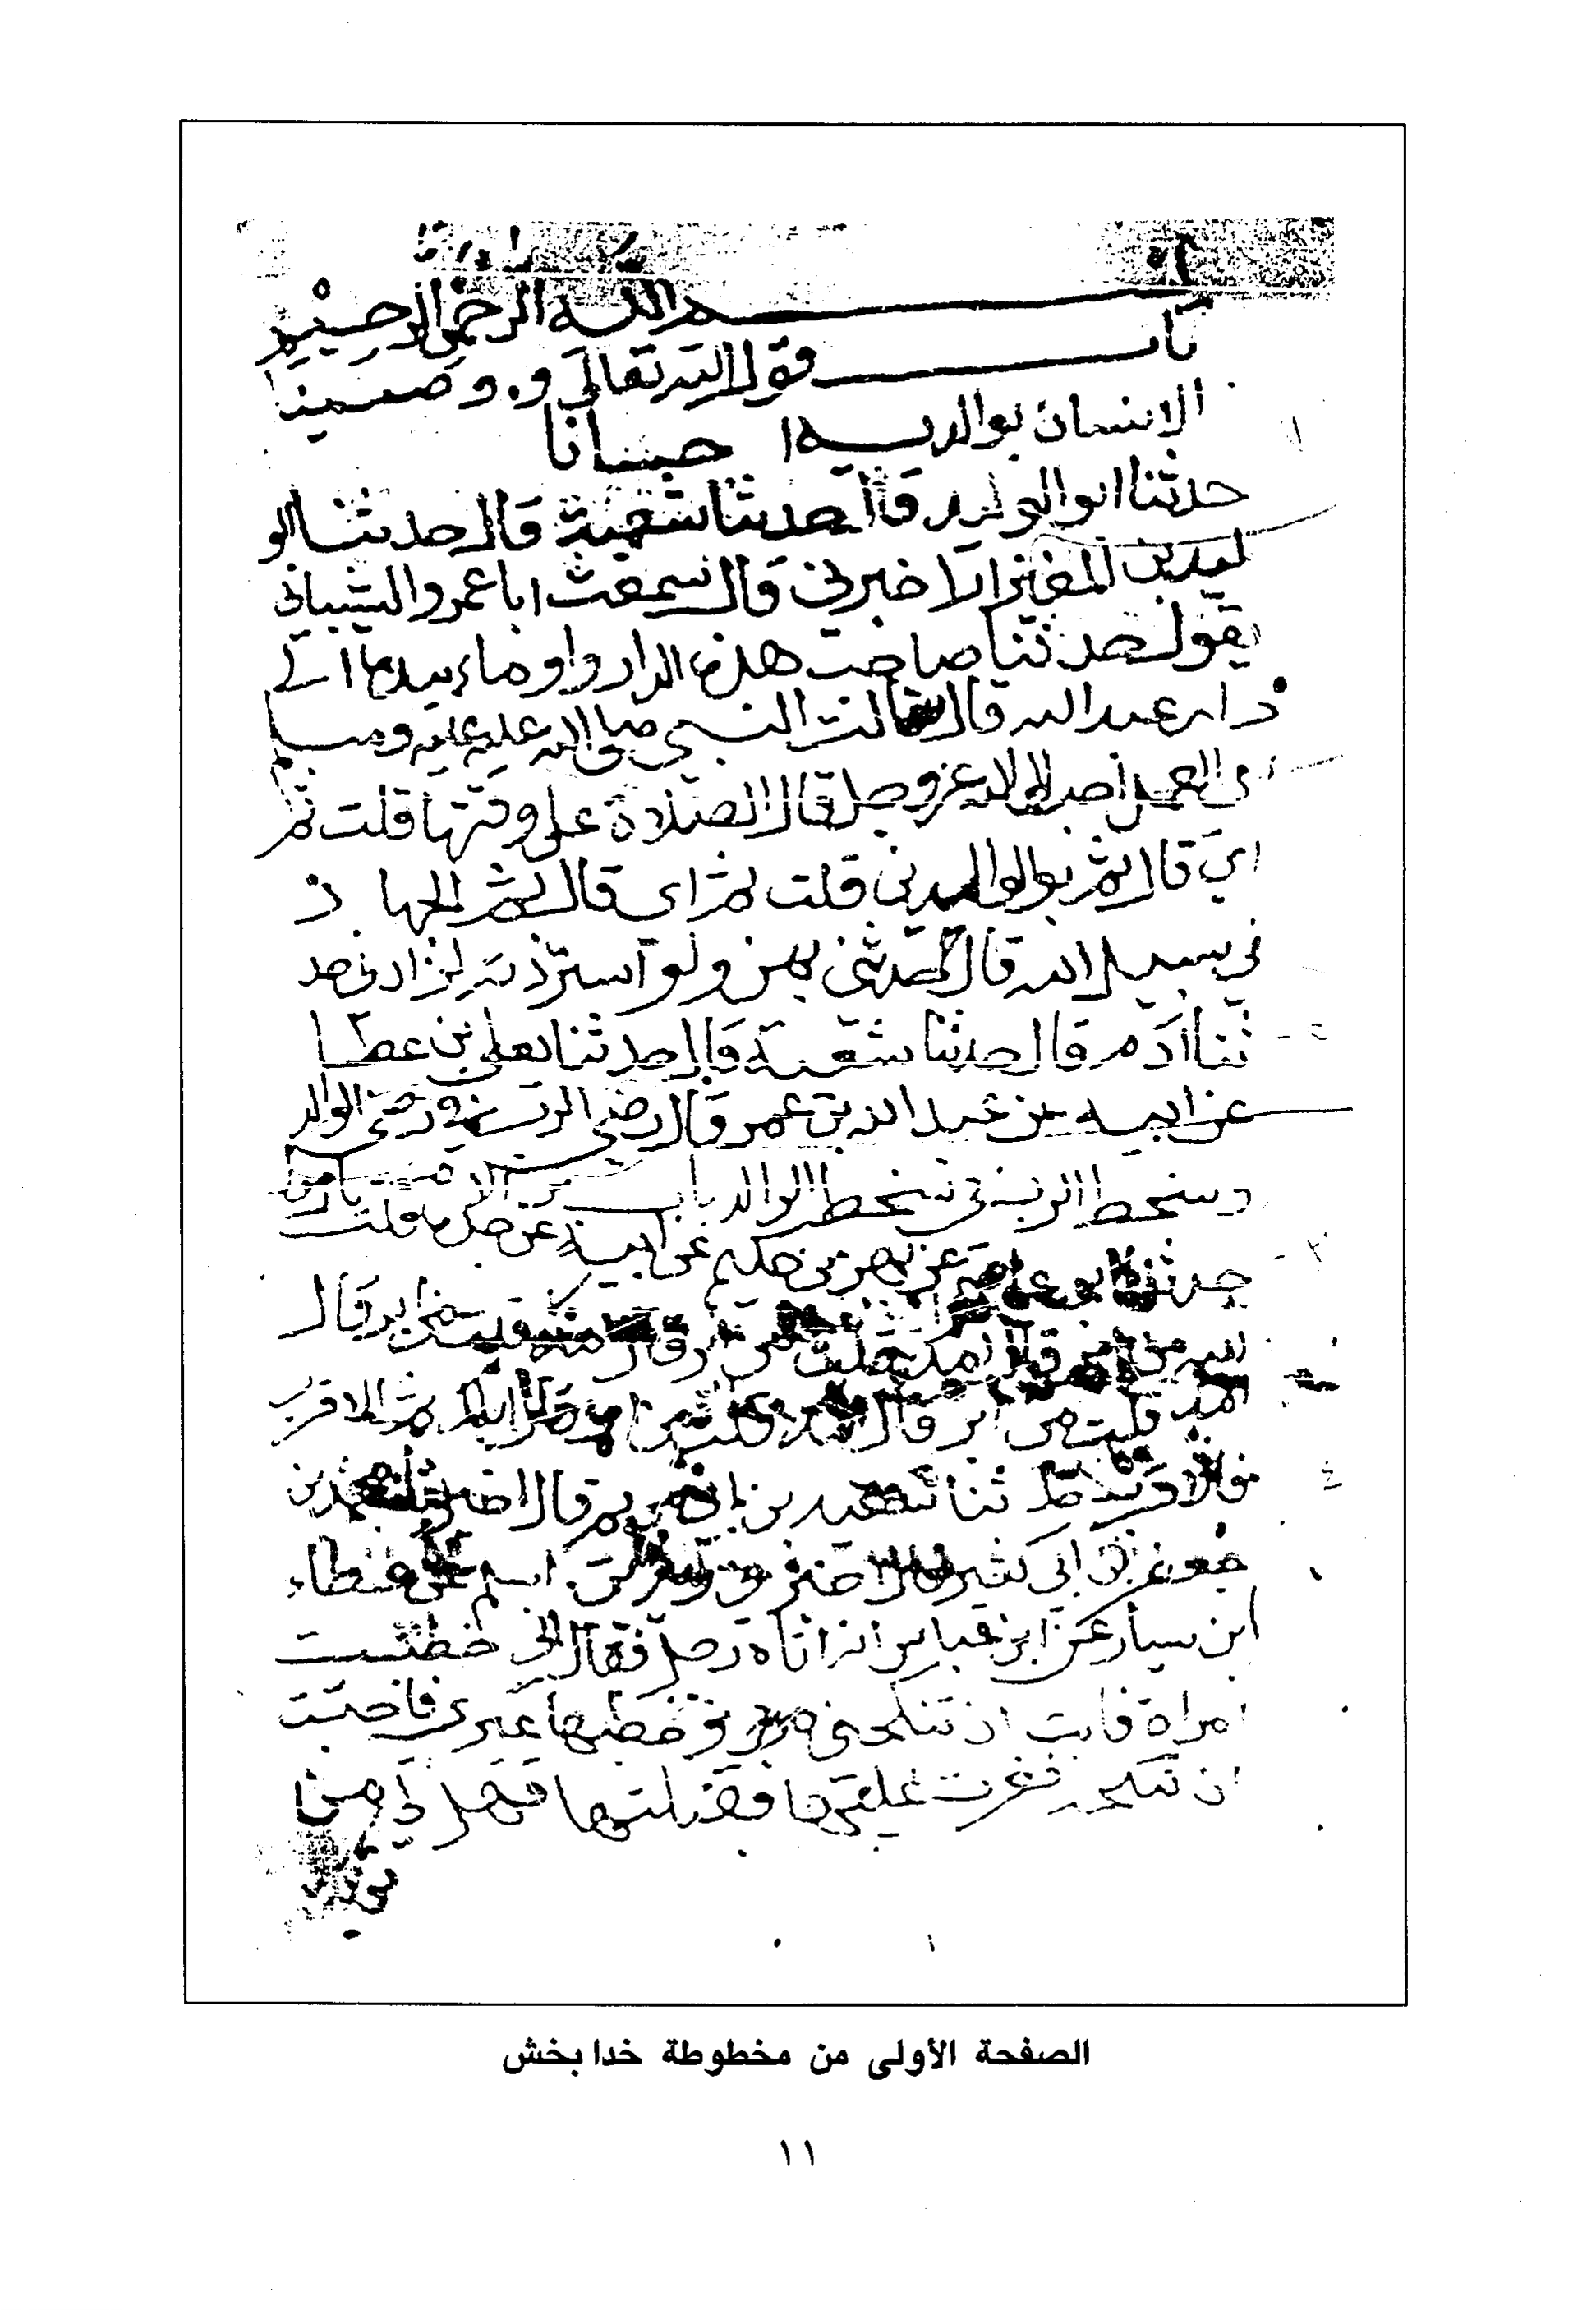 بسم الله الرحمن الرحيم
باب قول الله تعالى ووصينا
الانسان بوالديه حسانا
حدثنا ابو الوليد قال حدثنا شعبة قال حدثنا الو
ليد بن العيزار اخبرني قال سمعت ابا عمرو الشيباني
يقول حدثنا صاحب هذه الدار واوماء بيده الى
دار عبد الله قال سالت النبي صلى الله عليه وسلم
اى العمل احب الى الله عز وجل قال الصلاة على وقتها قلت ثم
اي قال ثم بر الوالدين قلت ثم اي قال ثم الجهاد
في سبيل الله قال حدثني بهن ولو استزدته لزادني حد
ثنا ادم قال حدثنا شعبة قال حدثنا يعلى بن عطا
عن ابيه عن عبد الله بن عمر قال رضى الرب في رضى الوالد
وسخط الرب في سخط الوالد باب بر الام
حدثنا ابو عاصم عن بهز بن حكيم عن ابيه عن جده قلت
من ابر قال امك قلت من ابر قال
امك قلت من ابر قال ثم الاقرب
فالاقرب حدثنا سعيد بن ابي مريم قال اخبرنا محمد بن
جعفر بن ابي كثير قال اخبرني زيد بن اسلم عن عطاء
ابن يسار عن ابن عباس انه اتاه رجل فقال اني خطبت
امراة فابت ان تنكحني وخطبها غيري فاحبت
ان تنكحه فغرت عليها فقتلتها فهل لي من
توبة
١
٢
٣
٤
الصفحة الأولى من مخطوطة خدا بخش
١١